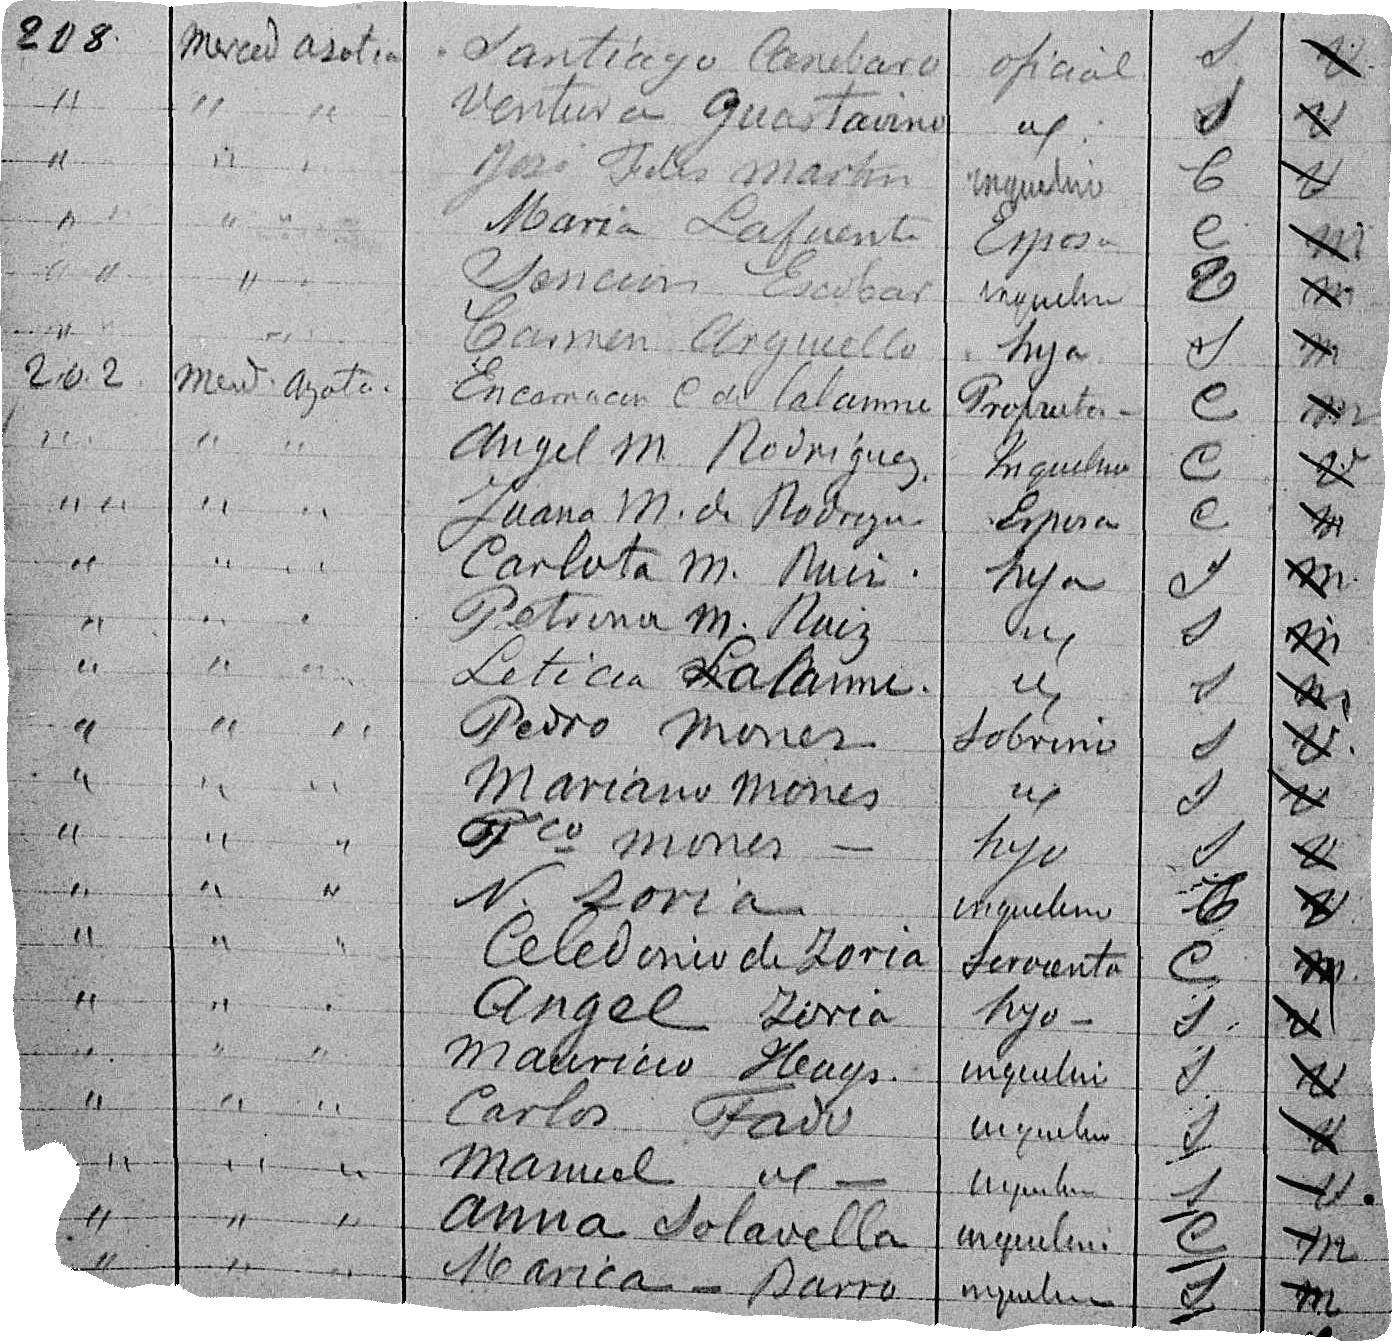 208. Merced azotea Santiago Canebaro oficial S V.
" " " Ventura Guastavino id. S V
" " " José Felis Martin inquilino C V
" " " " Maria Lafuente Esposa C m
" " " " Escobar inquilino m
" " " Carmen Arguello hija S m
202. Merd. Azotea. Encarnacion C de Lalanne Propieta- C m
" " " Angel M. Rodriguez. Inquilino C V
" " " " Juana M. de Rodrigu Esposa C m
" " " Carlota M. Ruiz. hija S m.
" " " Petrona M. Ruiz id S m
" " " Leticia Lalanne. id S m
" " " Pedro Mones Sobrino S V.
" " " Mariano Mones id S V
" " " Fco Mones — hijo S V
" " " N. Zoria inquilino C V
" " " Celedonio de Zoria Servienta C m.
" " " Angel Zoria hijo - S. V
" " " Mauricio Heays. inquilino S V
" " " Carlos Fado inquilino S V
" " " Manuel id — inquilino S V.
" " " Anna Solavella inquilino C m
" " " Marica - Barro inquilino S m